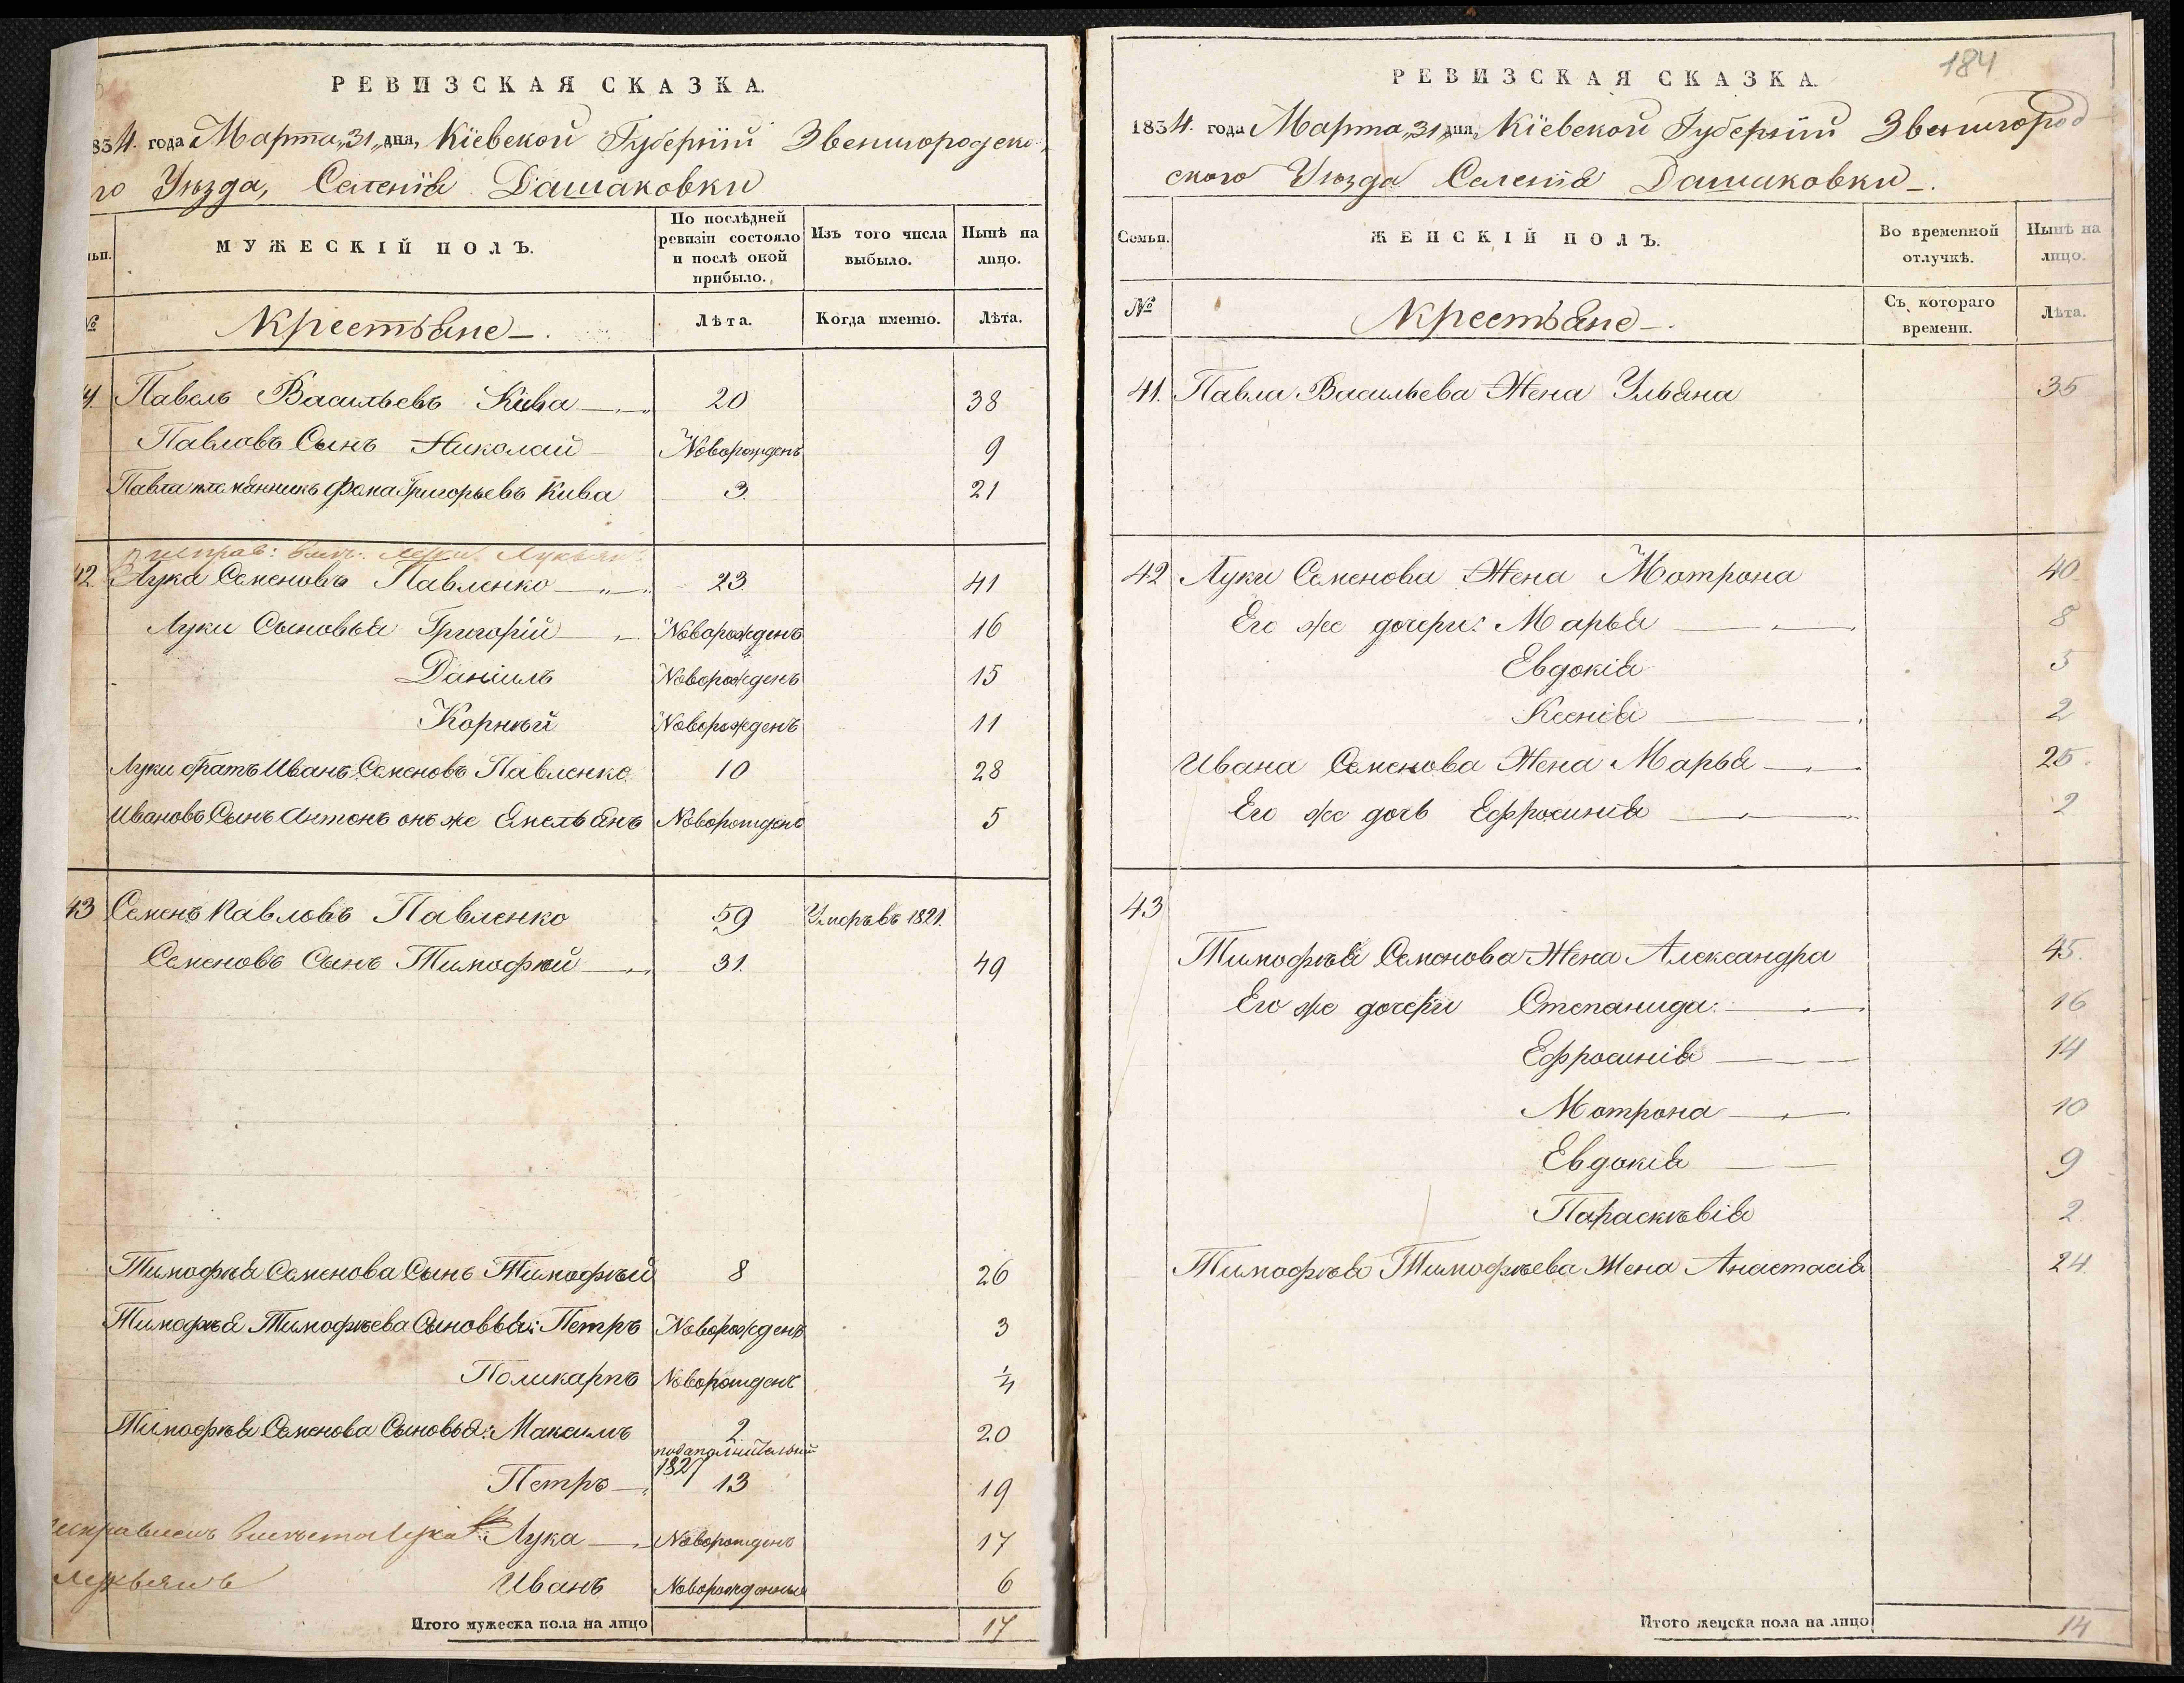 РЕВИЗСКАЯ СКАЗКА.
1834. года Марта „31„ дня, Кіевской Губерніи Звенигородско
го Уѣзда, Селенія Дашаковки
МУЖЕСКІЙ ПОЛЪ.
По послѣдней ревизіи состояло и послѣ оной прибыло.
Изъ того числа выбыло.
Нынѣ на лицо.
№
Крестьяне
Лѣта.
Когда именно.
Лѣта.
41. Павелъ Васильевъ Кива 20 38
Павловъ Сынъ Николай Новорожденъ 9
Павла племянникъ Фома Григорьевъ Кива 3. 21
42 Лука Семеновъ Павленко 23. 41
Луки Сыновья Григорій Новорожденъ 16
Даніилъ Новорожденъ 15
Корнѣй Новорожденъ 11
Луки братъ Иванъ Семеновъ Павленко 10 28
Ивановъ Сынъ Антонъ онъ же Емельянъ Новорожденъ 5
43 Семенъ Павловъ Павленко 59 Умеръ въ 1821.
Семеновъ Сынъ Тимофѣй 31. 49
Тимофѣя Семенова Сынъ Тимофѣй 8 26
Тимофѣя Тимофѣева Сыновья: Петръ Новорожденъ 3
Поликарпъ Новорожденъ 1/4
Тимофѣя Семенова Сыновья: Максимъ 2 20
1827
Петръ 13 19
Лука Новорожденъ 17
Иванъ Новорожденный 6
Итого мужеска пола на лицо 17
184
РЕВИЗСКАЯ СКАЗКА.
1834. года Марта „31„ дня, Кіевской Губерніи Звенигород
ского Уѣзда Селенія Дашаковки
Семьи.
ЖЕНСКІЙ ПОЛЪ.
Во временной отлучкѣ.
Нынѣ на лицо.
№
Крестьяне
Съ котораго времени.
Лѣта.
41. Павла Васильева Жена Ульяна 35
42 Луки Семенова Жена Мотрона 40
Его же дочери: Марья 8
Евдокія 5
Ксенія 2
Ивана Семенова Жена Марья 25.
Его же дочь Ефросинія 2
43
Тимофѣя Семенова Жена Александра 45.
Его же дочери Степанида: 16
Ефросинія 14
Мотрона 10
Евдокія 9
Параскѣвія 2
Тимофѣя Тимофѣева Жена Анастасія 24.
Итого женска пола на лицо 14